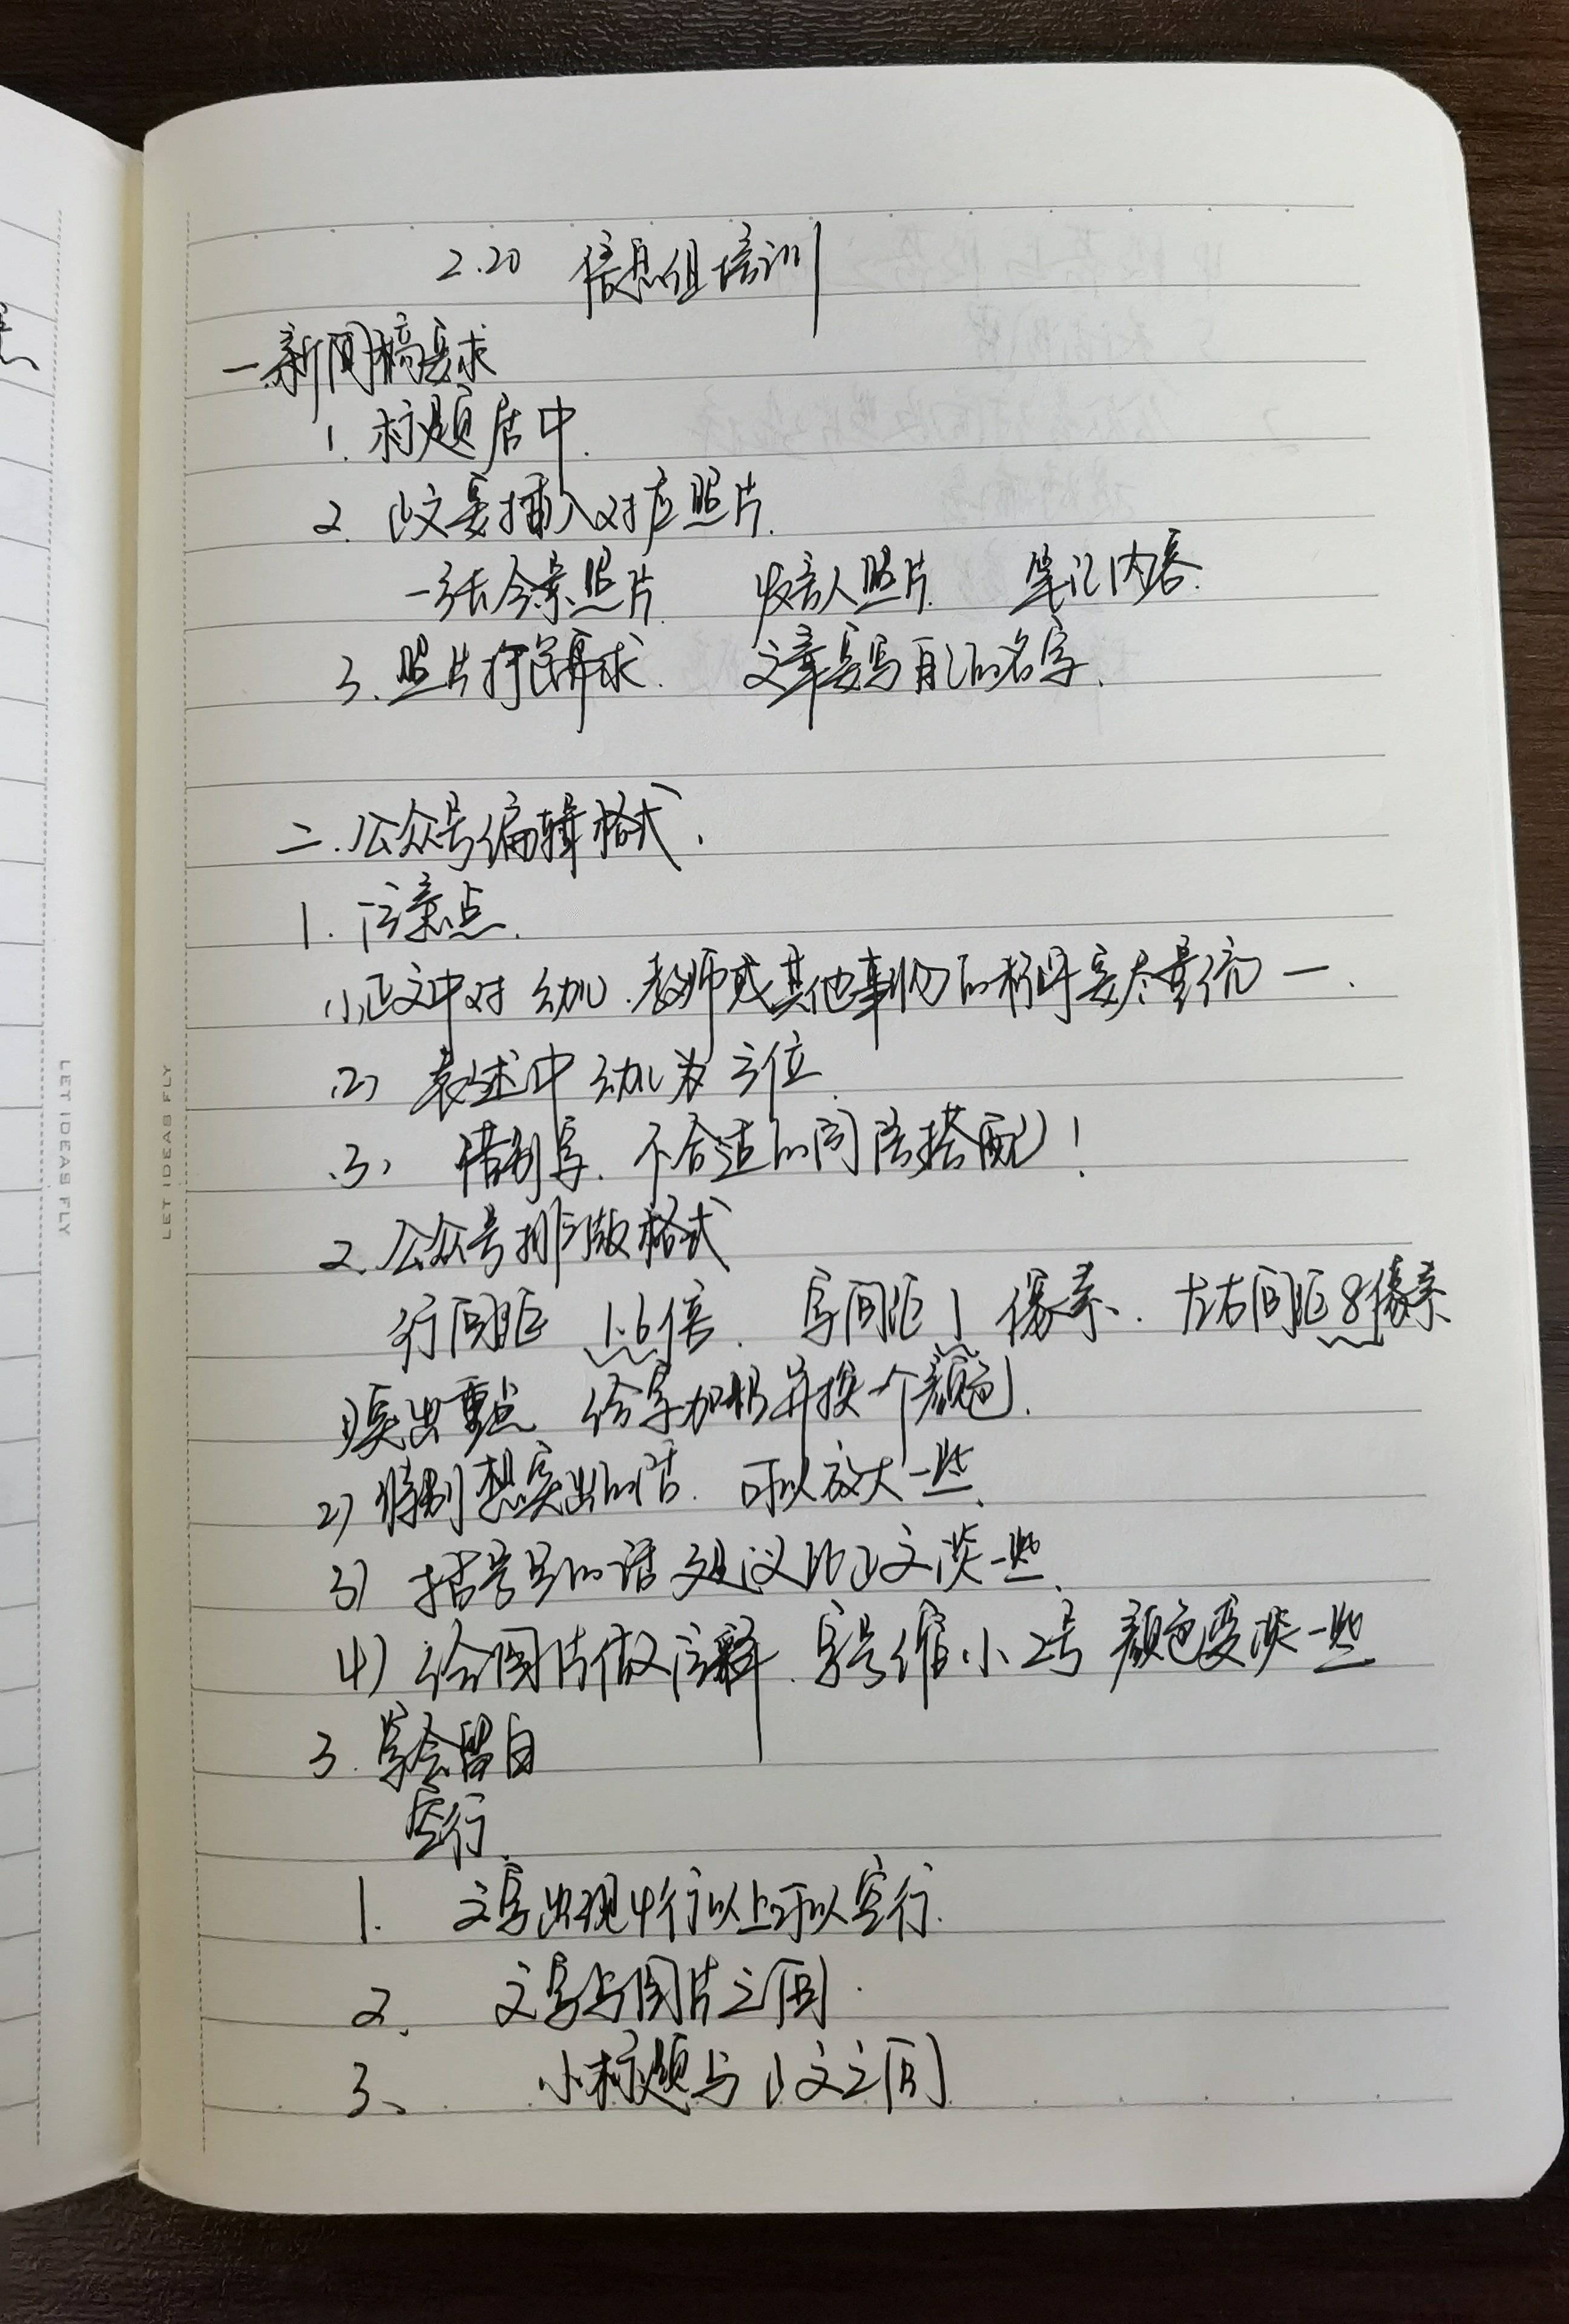 2.20 信息组培训
一.新闻稿要求
1. 标题居中.
2. 正文要插入对应照片.
一张全景照片. 发言人照片. 笔记内容.
3. 照片按需求. 文章要写自己的名字.
二.公众号编辑格式.
1. 注意点.
(1)正文中对幼儿.教师或其他事物的称呼要尽量统一.
(2) 表述中幼儿为主位.
(3) 错别字.不合适的词语搭配!
2.公众号排版格式
行间距 1.6倍. 字间距1像素. 左右间距8像素
1)突出重点 给字加粗并换一个颜色.
2)特别想突出的话.可以放大一些.
3) 括号里的话建议比正文淡一些.
4) 给图片做注释.字号缩小2号 颜色要淡一些
3.学会留白
空行.
1. 文字出现4行以上可以空行.
2. 文字与图片之间.
3、 小标题与正文之间
LET IDEAS FLY
LET IDEAS FLY